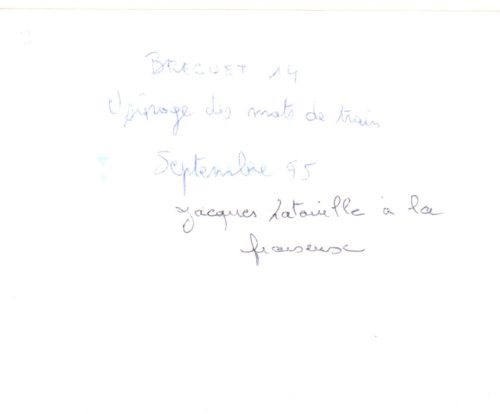 BREGUET 14
Usinage des mats de train
Septembre 95
Jacques Latouille à la
fraiseuse